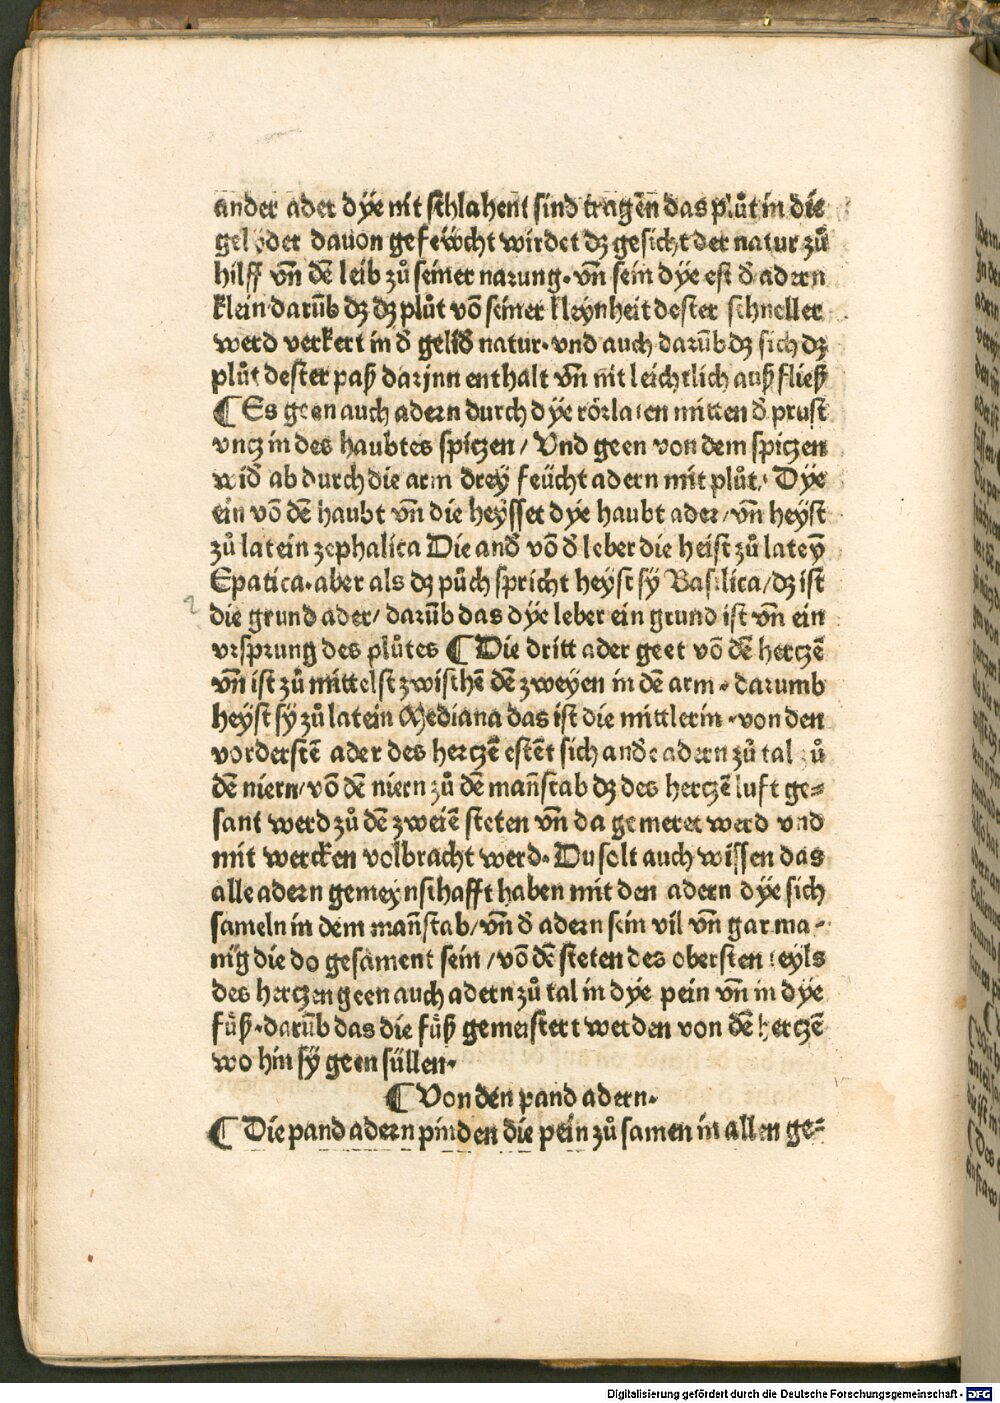 ander ader dÿe nit schlahent sind tragen̄ das plůt in die
gelÿder dauon gefeücht wirdet dz gesicht der natur zů
hilff vn̄ dē leib zů seiner narung. vn̄ sein dÿe est đ adern
klein darūb dz dz plůt vō seiner kleynheit dester schneller
werd verkert in đ geliđ natur. vnd auch darūb dz sich dz
plůt dester paß darjnn enthalt vn̄ nit leichtlich auß fließ
¶ Es geen auch adern durch dÿe rörlaten mitten đ prust
vncz in des haubtes spiczen / Vnd geen von dem spiczen
wiđ ab durch die arm dreÿ feücht adern mit plůt. Dÿe
ein vō dē haubt vn̄ die heÿsset dÿe haubt ader / vn̄ heÿst
zů latein zephalica Die anđ vō đ leber die heist zů lateÿ̄
Epatica. aber als dz půch spricht heÿst sÿ Basilica / dz ist
die grund ader / darūb das dÿe leber ein grund ist vn̄ ein
vrsprung des plůtes ¶ Die dritt ader geet vō dē herczē
vn̄ ist zů mittelst zwischē dē zweÿen in dē arm. darumb
heÿst sÿ zů latein Mediana das ist die mittlerin. von den
vorderstē ader des herczē estēt sich anđe adern zů tal zů
dē niern / vō dē niern zů dē man̄stab dz des herczē luft ge=
sant werd zů dē zweiē steten vn̄ da gemeret werd vnd
mit wercken volbracht werd. Du solt auch wissen das
alle adern gemeÿnschafft haben mit den adern dÿe sich
sameln in dem man̄stab / vn̄ đ adern sein vil vn̄ gar ma-
nig die do gesament sein / vō dē steten des obersten teyls
des herczen geen auch adern zů tal in dÿe pein vn̄ in dÿe
füß. darūb das die füß gemeistert werden von dē herczē
wo hin sÿ geen süllen.
¶ Von den pand adern.
¶ Die pand adern pinden die pein zů samen in allen ge=
2
Digitalisierung gefördert durch die Deutsche Forschungsgemeinschaft - DFG